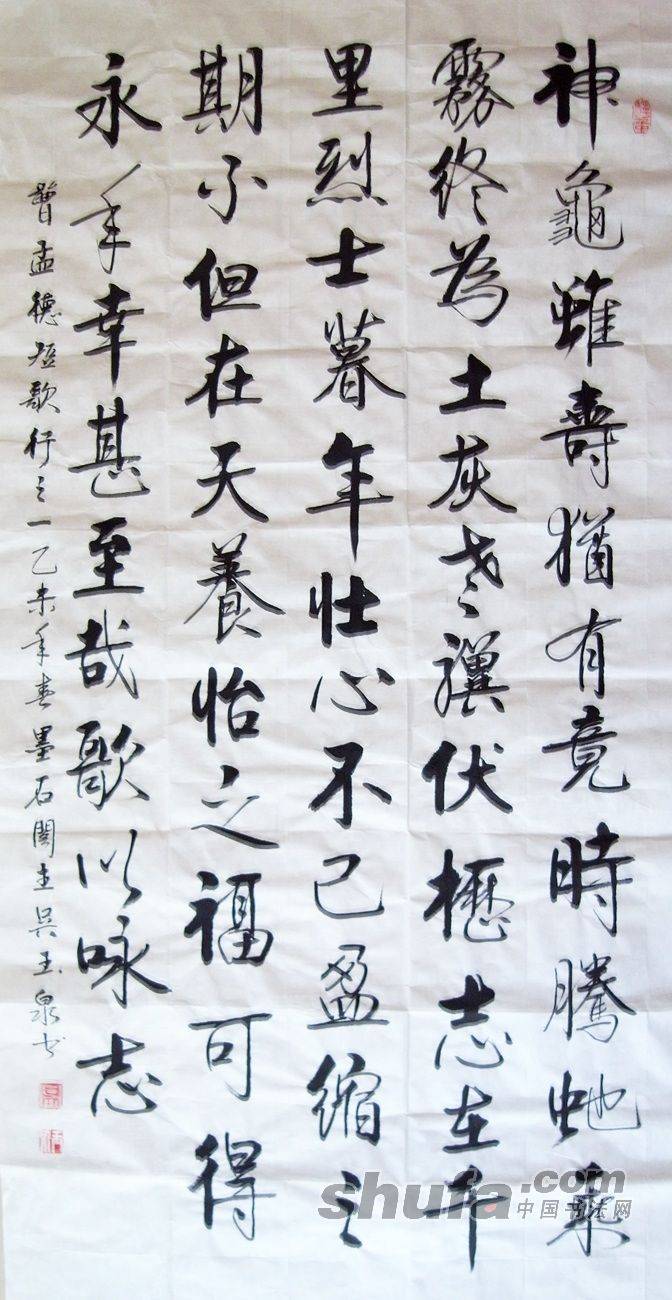 神龜雖壽猶有竟時騰虵乘
霧終為土灰老驥伏櫪志在千
里烈士暮年壯心不已盈縮之
期不但在天養怡之福可得
永年幸甚至哉歌以咏志
曹孟德短歌行之一乙未年春墨石閣主吳玉泉书
shufa.com
中国书法网